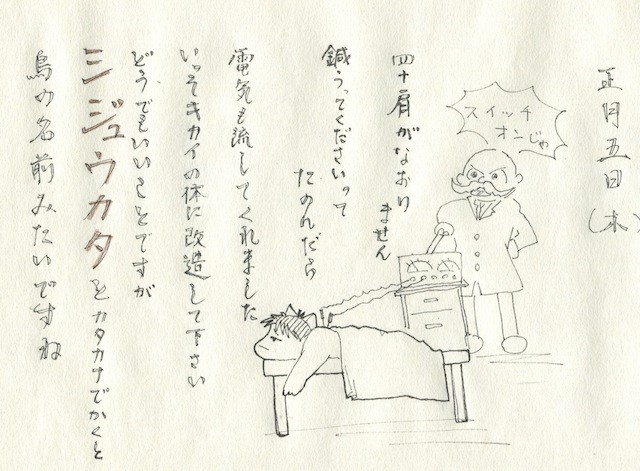 正月五日(木)
スイッチ
オンじゃ
四十肩がなおり
ません
鍼うってくださいって
たのんだら
電気も流してくれました
いっそキカイの体に改造して下さい
どうでもいいことですが
シジュウカタとカタカナでかくと
鳥の名前みたいですね